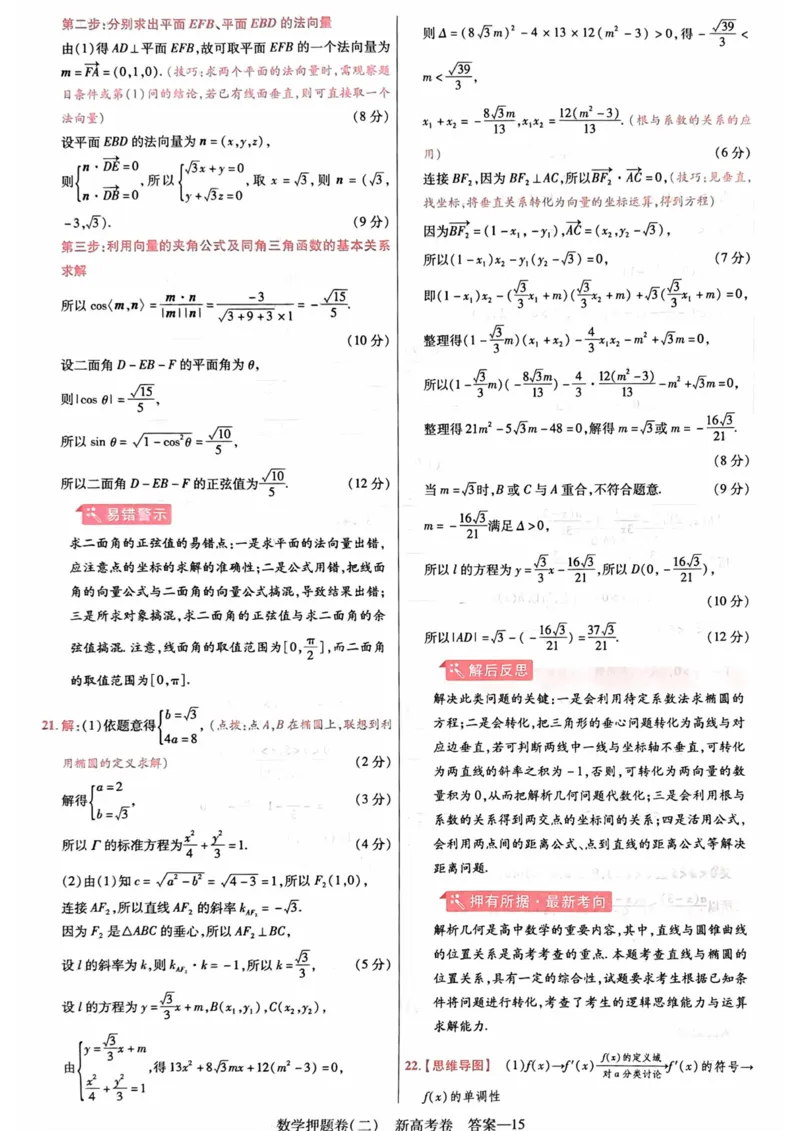 第二步:分别求出平面 EFB、平面 EBD 的法向量
由(1)得 AD⊥平面 EFB,故可取平面 EFB 的一个法向量为
m = $\overrightarrow{FA}$ = (0,1,0). (技巧:求两个平面的法向量时,需观察题
目条件或第(1)问的结论,若已有线面垂直,则可直接取一个
法向量) (8 分)
设平面 EBD 的法向量为 n = (x,y,z),
则 $\begin{cases} n·\overrightarrow{DE}=0 \\ n·\overrightarrow{DB}=0 \end{cases}$,所以 $\begin{cases} \sqrt{3}x+y=0 \\ y+\sqrt{3}z=0 \end{cases}$,取 x = √3,则 n = (√3,
-3,√3). (9 分)
第三步:利用向量的夹角公式及同角三角函数的基本关系
求解
所以 cos⟨m,n⟩ = $\frac{m·n}{|m||n|}$ = $\frac{-3}{\sqrt{3+9+3}×1}$ = $-\frac{\sqrt{15}}{5}$.
(10 分)
设二面角 D-EB-F 的平面角为 θ,
则|cos θ| = $\frac{\sqrt{15}}{5}$,
所以 sin θ = $\sqrt{1-\cos^2θ}$ = $\frac{\sqrt{10}}{5}$,
所以二面角 D-EB-F 的正弦值为 $\frac{\sqrt{10}}{5}$. (12 分)
易错警示
求二面角的正弦值的易错点:一是求平面的法向量出错,
应注意点的坐标的求解的准确性;二是公式用错,把线面
角的向量公式与二面角的向量公式搞混,导致结果出错;
三是所求对象搞混,求二面角的正弦值与求二面角的余
弦值搞混. 注意,线面角的取值范围为[0,$\frac{π}{2}$],而二面角
的取值范围为[0,π].
21. 解:(1)依题意得 $\begin{cases} b=\sqrt{3} \\ 4a=8 \end{cases}$,(点拨:点 A,B 在椭圆上,联想到利
用椭圆的定义求解) (2 分)
解得 $\begin{cases} a=2 \\ b=\sqrt{3} \end{cases}$, (3 分)
所以 Γ 的标准方程为 $\frac{x^2}{4}+\frac{y^2}{3}=1$. (4 分)
(2)由(1)知 c = $\sqrt{a^2-b^2}$ = $\sqrt{4-3}$ = 1,所以 F₂(1,0),
连接 AF₂,所以直线 AF₂ 的斜率 $k_{AF_2}$ = -√3.
因为 F₂ 是△ABC 的垂心,所以 AF₂⊥BC,
设 l 的斜率为 k,则 $k_{AF_2}$·k = -1,所以 k = $\frac{\sqrt{3}}{3}$, (5 分)
设 l 的方程为 y = $\frac{\sqrt{3}}{3}$x + m,B(x₁,y₁),C(x₂,y₂),
由 $\begin{cases} y=\frac{\sqrt{3}}{3}x+m \\ \frac{x^2}{4}+\frac{y^2}{3}=1 \end{cases}$,得 13x² + 8√3mx + 12(m² - 3) = 0,
则 Δ = (8√3m)² - 4 × 13 × 12(m² - 3) > 0,得 $-\frac{\sqrt{39}}{3}$ <
m < $\frac{\sqrt{39}}{3}$,
x₁ + x₂ = $-\frac{8\sqrt{3}m}{13}$,x₁x₂ = $\frac{12(m^2-3)}{13}$. (根与系数的关系的应
用) (6 分)
连接 BF₂,因为 BF₂⊥AC,所以 $\overrightarrow{BF_2}$·$\overrightarrow{AC}$ = 0,(技巧:见垂直,
找坐标,将垂直关系转化为向量的坐标运算,得到方程)
因为 $\overrightarrow{BF_2}$ = (1 - x₁, -y₁),$\overrightarrow{AC}$ = (x₂,y₂ - √3),
所以(1 - x₁)x₂ - y₁(y₂ - √3) = 0, (7 分)
即(1 - x₁)x₂ - ($\frac{\sqrt{3}}{3}$x₁ + m)($\frac{\sqrt{3}}{3}$x₂ + m) + √3($\frac{\sqrt{3}}{3}$x₁ + m) = 0,
整理得(1 - $\frac{\sqrt{3}}{3}$m)(x₁ + x₂) - $\frac{4}{3}$x₁x₂ - m² + √3m = 0,
所以(1 - $\frac{\sqrt{3}}{3}$m)($-\frac{8\sqrt{3}m}{13}$) - $\frac{4}{3}$·$\frac{12(m^2-3)}{13}$ - m² + √3m = 0,
整理得 21m² - 5√3m - 48 = 0,解得 m = √3或 m = $-\frac{16\sqrt{3}}{21}$.
(8 分)
当 m = √3时,B 或 C 与 A 重合,不符合题意. (9 分)
m = $-\frac{16\sqrt{3}}{21}$满足 Δ > 0,
所以 l 的方程为 y = $\frac{\sqrt{3}}{3}$x - $\frac{16\sqrt{3}}{21}$,所以 D(0, $-\frac{16\sqrt{3}}{21}$),
(10 分)
所以|AD| = √3 - ($-\frac{16\sqrt{3}}{21}$) = $\frac{37\sqrt{3}}{21}$. (12 分)
解后反思
解决此类问题的关键:一是会利用待定系数法求椭圆的
方程;二是会转化,把三角形的垂心问题转化为高线与对
应边垂直,若可判断两线中一线与坐标轴不垂直,可转化
为两直线的斜率之积为 -1,否则,可转化为两向量的数
量积为 0,从而把解析几何问题代数化;三是会利用根与
系数的关系得到两交点的坐标间的关系;四是活用公式,
会利用两点间的距离公式、点到直线的距离公式等解决
距离问题.
拥有所据·最新考向
解析几何是高中数学的重要内容,其中,直线与圆锥曲线
的位置关系是高考考查的重点. 本题考查直线与椭圆的
位置关系,具有一定的综合性,试题要求考生根据已知条
件将问题进行转化,考查了考生的逻辑思维能力与运算
求解能力.
22.【思维导图】 (1)f(x)→f′(x) $\xrightarrow[对 a 分类讨论]{f(x)的定义域}$ f′(x)的符号→
f(x)的单调性
数学押题卷(二) 新高考卷 答案—15